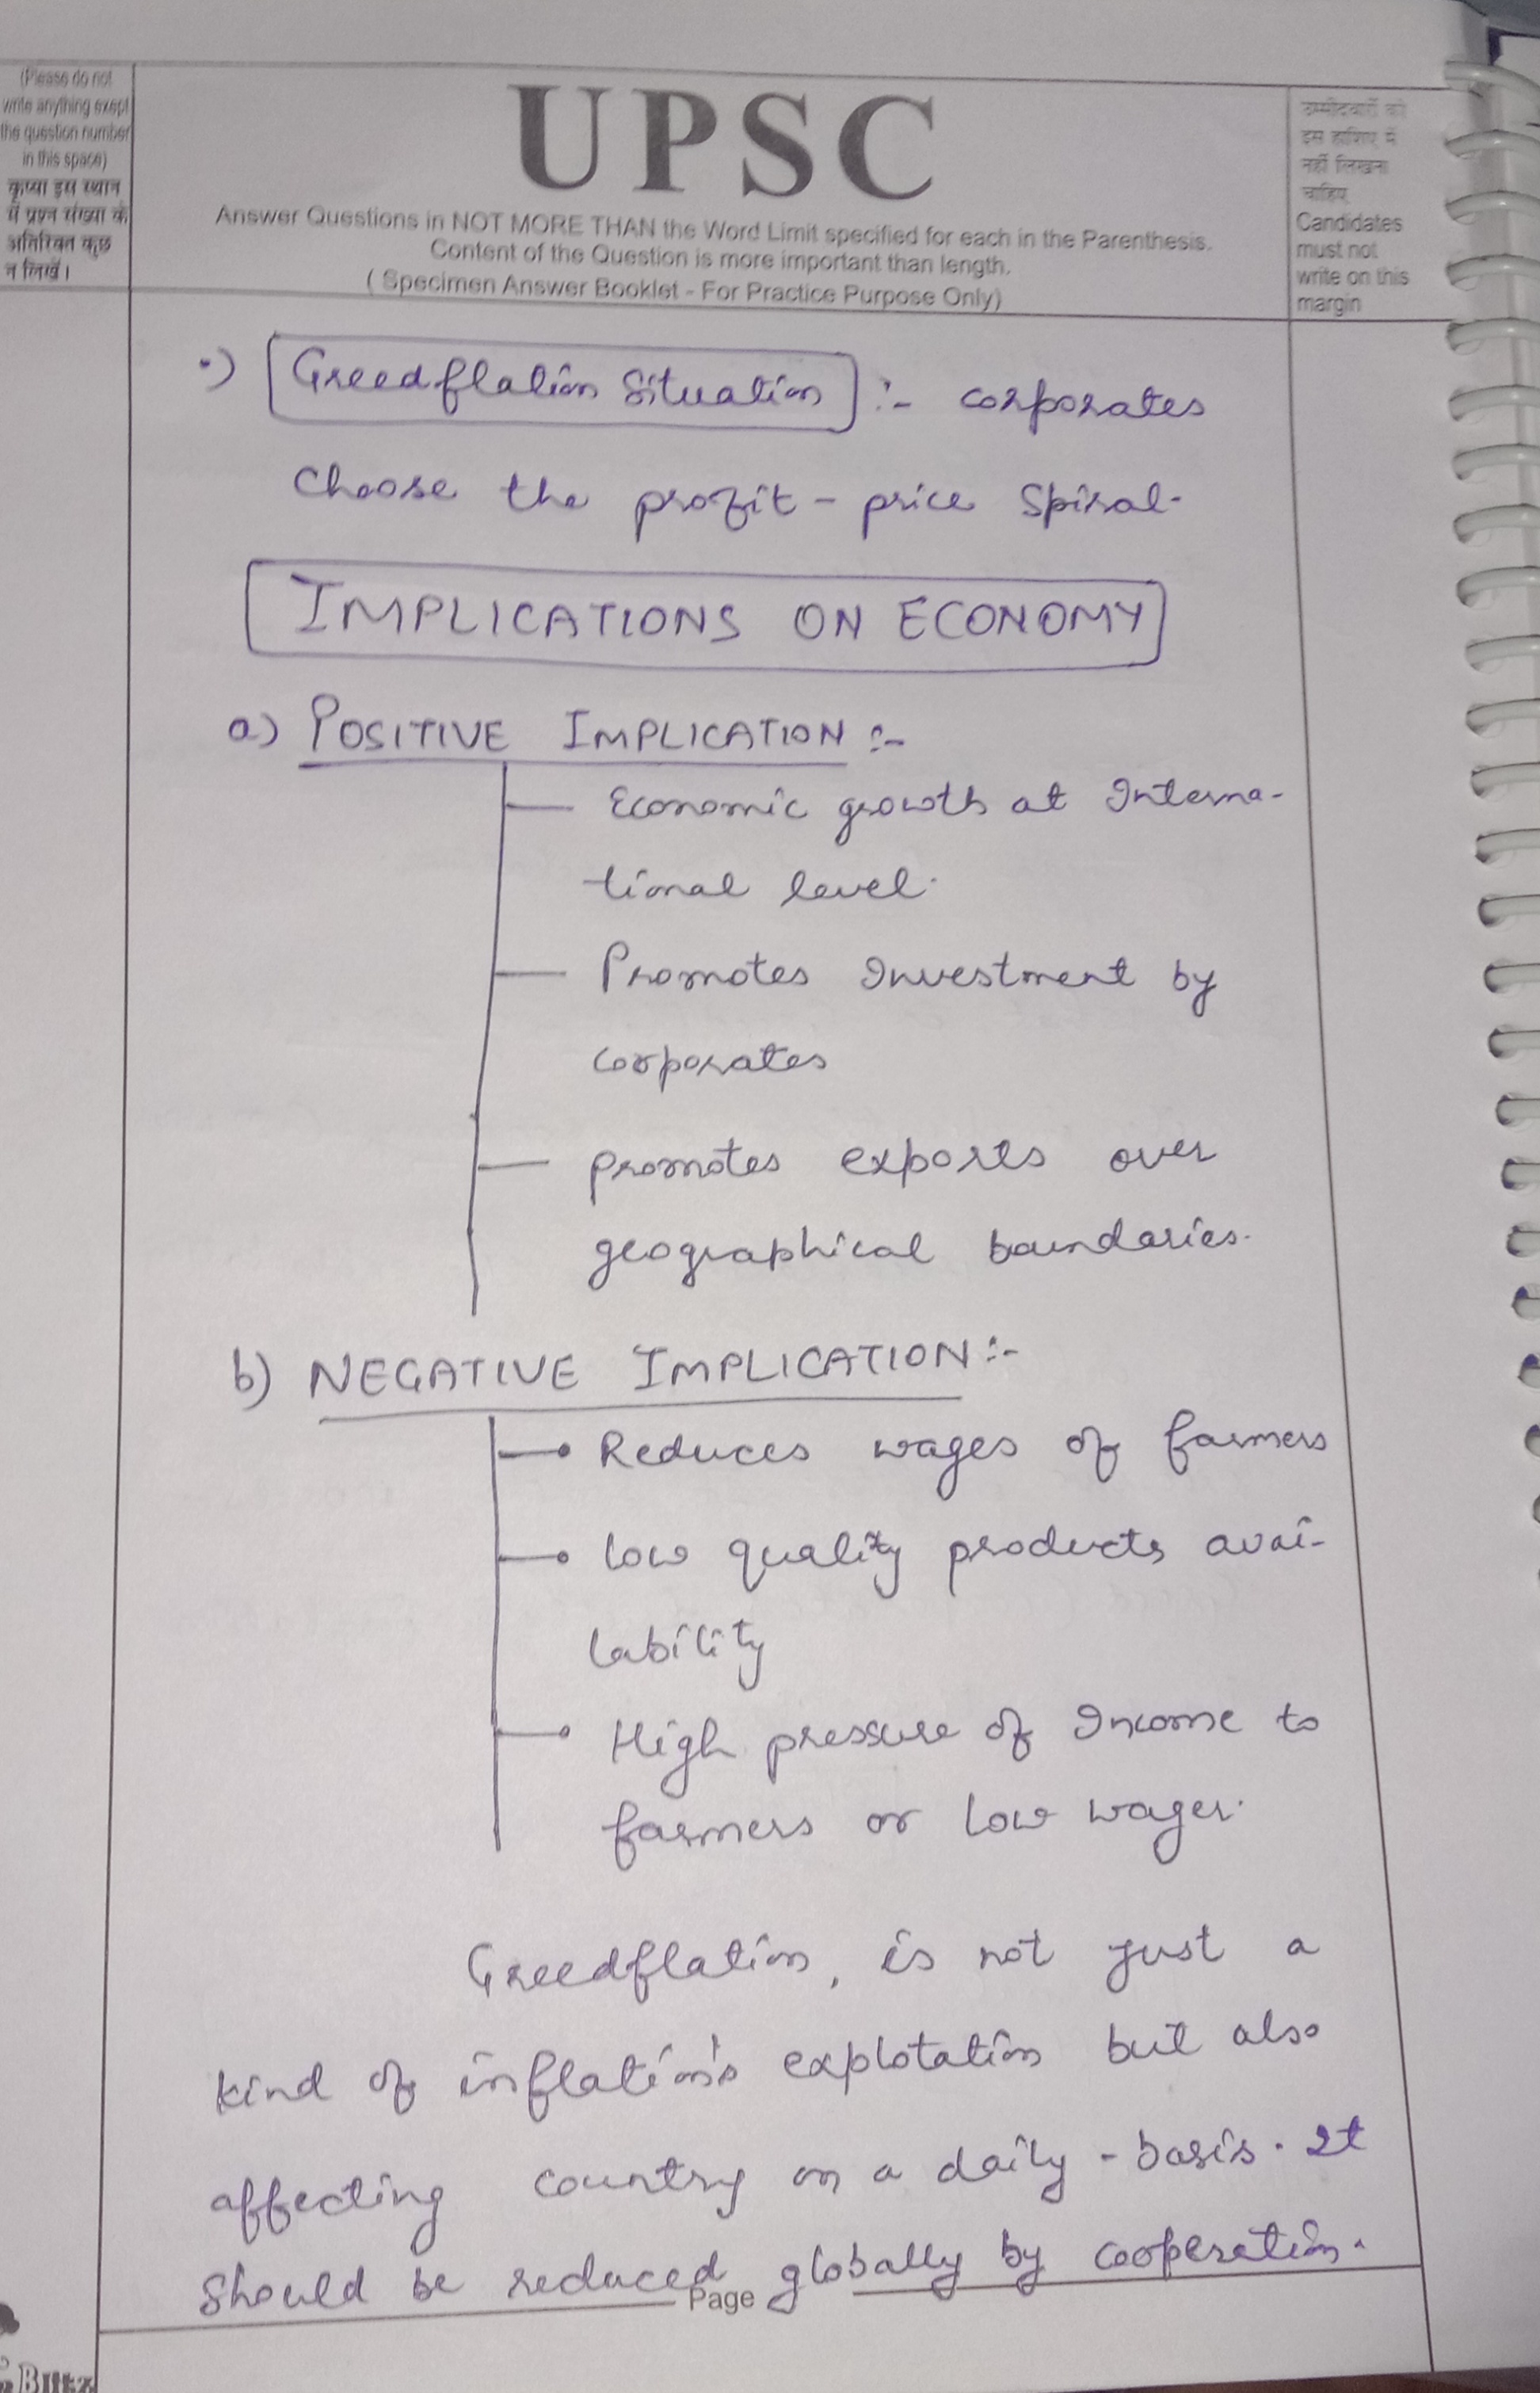 (Please do not
write anything exept
the question number
in this space)
कृप्या इस स्थान
में प्रश्न संख्या के
अतिरिक्त कुछ
न लिखें।
UPSC
Answer Questions in NOT MORE THAN the Word Limit specified for each in the Parenthesis.
Content of the Question is more important than length.
( Specimen Answer Booklet - For Practice Purpose Only)
उम्मीदवारों को
इस हाशिए में
नहीं लिखना
चाहिए
Candidates
must not
write on this
margin
•) Greedflation Situation :- corporates
Choose the profit - price Spiral.
IMPLICATIONS ON ECONOMY
a) POSITIVE IMPLICATION :-
Economic growth at Interna-
tional level.
Promotes Investment by
corporates
promotes exports over
geographical boundaries.
b) NEGATIVE IMPLICATION :-
Reduces wages of farmers
low quality products avai-
lability
High pressure of Income to
farmers or low wages.
Greedflation, is not just a
kind of inflation's explotation but also
affecting country on a daily - basis. It
should be reduced globally by cooperation.
Page